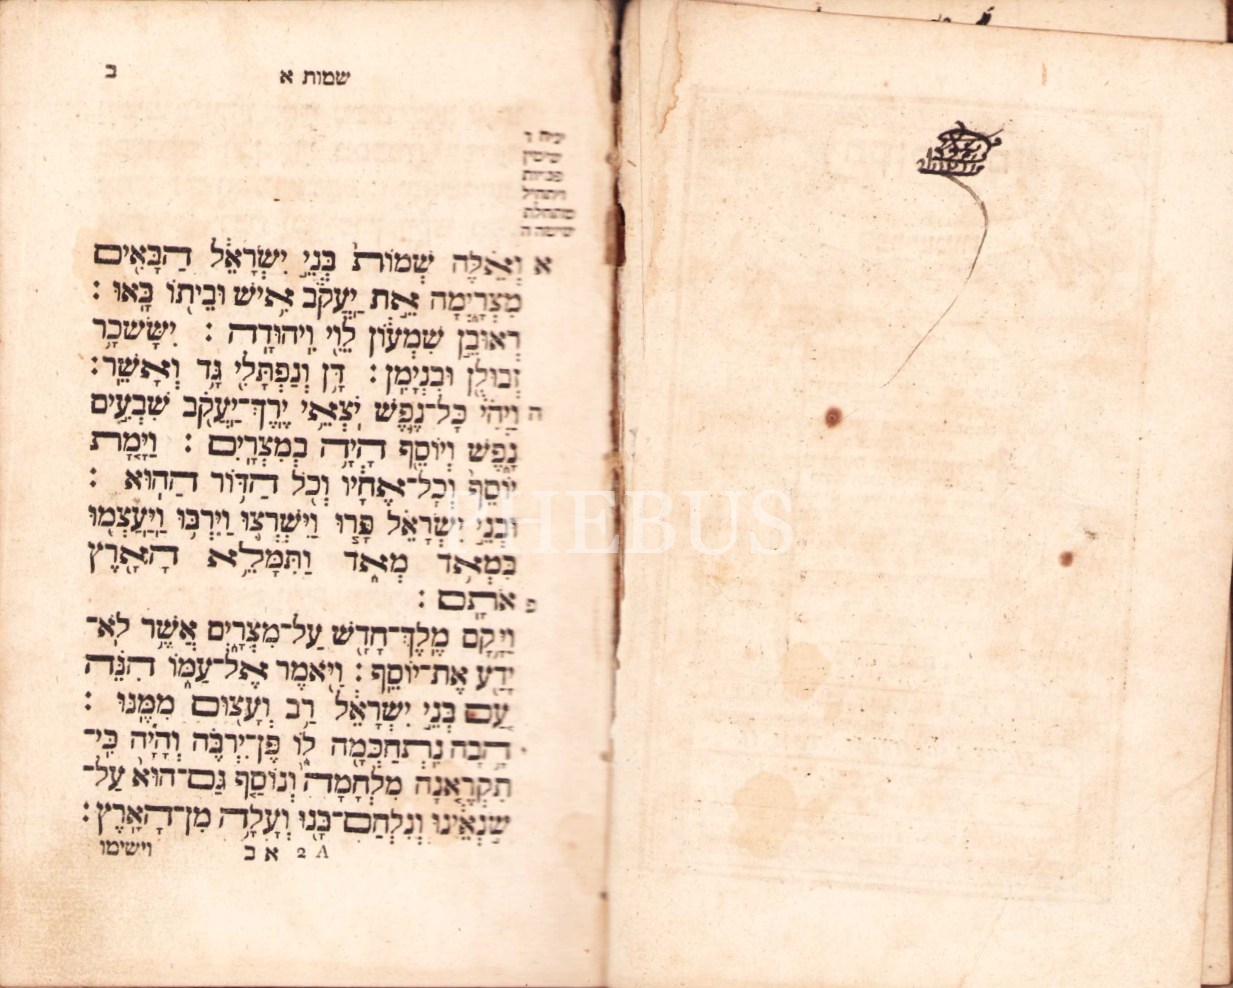 ב
שמות א
שיטין
פנויות
ויתחיל
מתחלת
שישה ה
א וְאֵ֗לֶּה שְׁמוֹת֙ בְּנֵ֣י יִשְׂרָאֵ֔ל הַבָּאִ֖ים
מִצְרָ֑יְמָה אֵ֣ת יַעֲקֹ֔ב אִ֥ישׁ וּבֵית֖וֹ בָּֽאוּ :
רְאוּבֵ֣ן שִׁמְע֔וֹן לֵוִ֖י וִֽיהוּדָֽה : יִשָּׂשכָ֥ר
זְבוּלֻ֖ן וּבִנְיָמִֽן : דָּ֥ן וְנַפְתָּלִ֖י גָּ֥ד וְאָשֵֽׁר :
ה וַֽיְהִ֗י כָּל־נֶ֛פֶשׁ יֹצְאֵ֥י יֶֽרֶךְ־יַעֲקֹ֖ב שִׁבְעִ֣ים
נָ֑פֶשׁ וְיוֹסֵ֖ף הָיָ֥ה בְמִצְרָֽיִם : וַיָּ֤מָת
יוֹסֵף֙ וְכָל־אֶחָ֔יו וְכֹ֖ל הַדּ֥וֹר הַהֽוּא :
וּבְנֵ֣י יִשְׂרָאֵ֗ל פָּר֧וּ וַֽיִּשְׁרְצ֛וּ וַיִּרְבּ֥וּ וַיַּֽעַצְמ֖וּ
בִּמְאֹ֣ד מְאֹ֑ד וַתִּמָּלֵ֥א הָאָ֖רֶץ
פ אֹתָֽם :
וַיָּ֥קָם מֶֽלֶךְ־חָדָ֖שׁ עַל־מִצְרָ֑יִם אֲשֶׁ֥ר לֹֽא־
יָדַ֖ע אֶת־יוֹסֵֽף : וַיֹּ֖אמֶר אֶל־עַמּ֑וֹ הִנֵּ֗ה
עַ֚ם בְּנֵ֣י יִשְׂרָאֵ֔ל רַ֥ב וְעָצ֖וּם מִמֶּֽנּוּ :
הָ֥בָה נִֽתְחַכְּמָ֖ה ל֑וֹ פֶּן־יִרְבֶּ֗ה וְהָיָ֞ה כִּֽי־
תִקְרֶ֤אנָה מִלְחָמָה֙ וְנוֹסַ֤ף גַּם־הוּא֙ עַל־
שֹׂ֣נְאֵ֔ינוּ וְנִלְחַם־בָּ֖נוּ וְעָלָ֥ה מִן־הָאָֽרֶץ :
A 2 א ב וישימו
PHEBUS